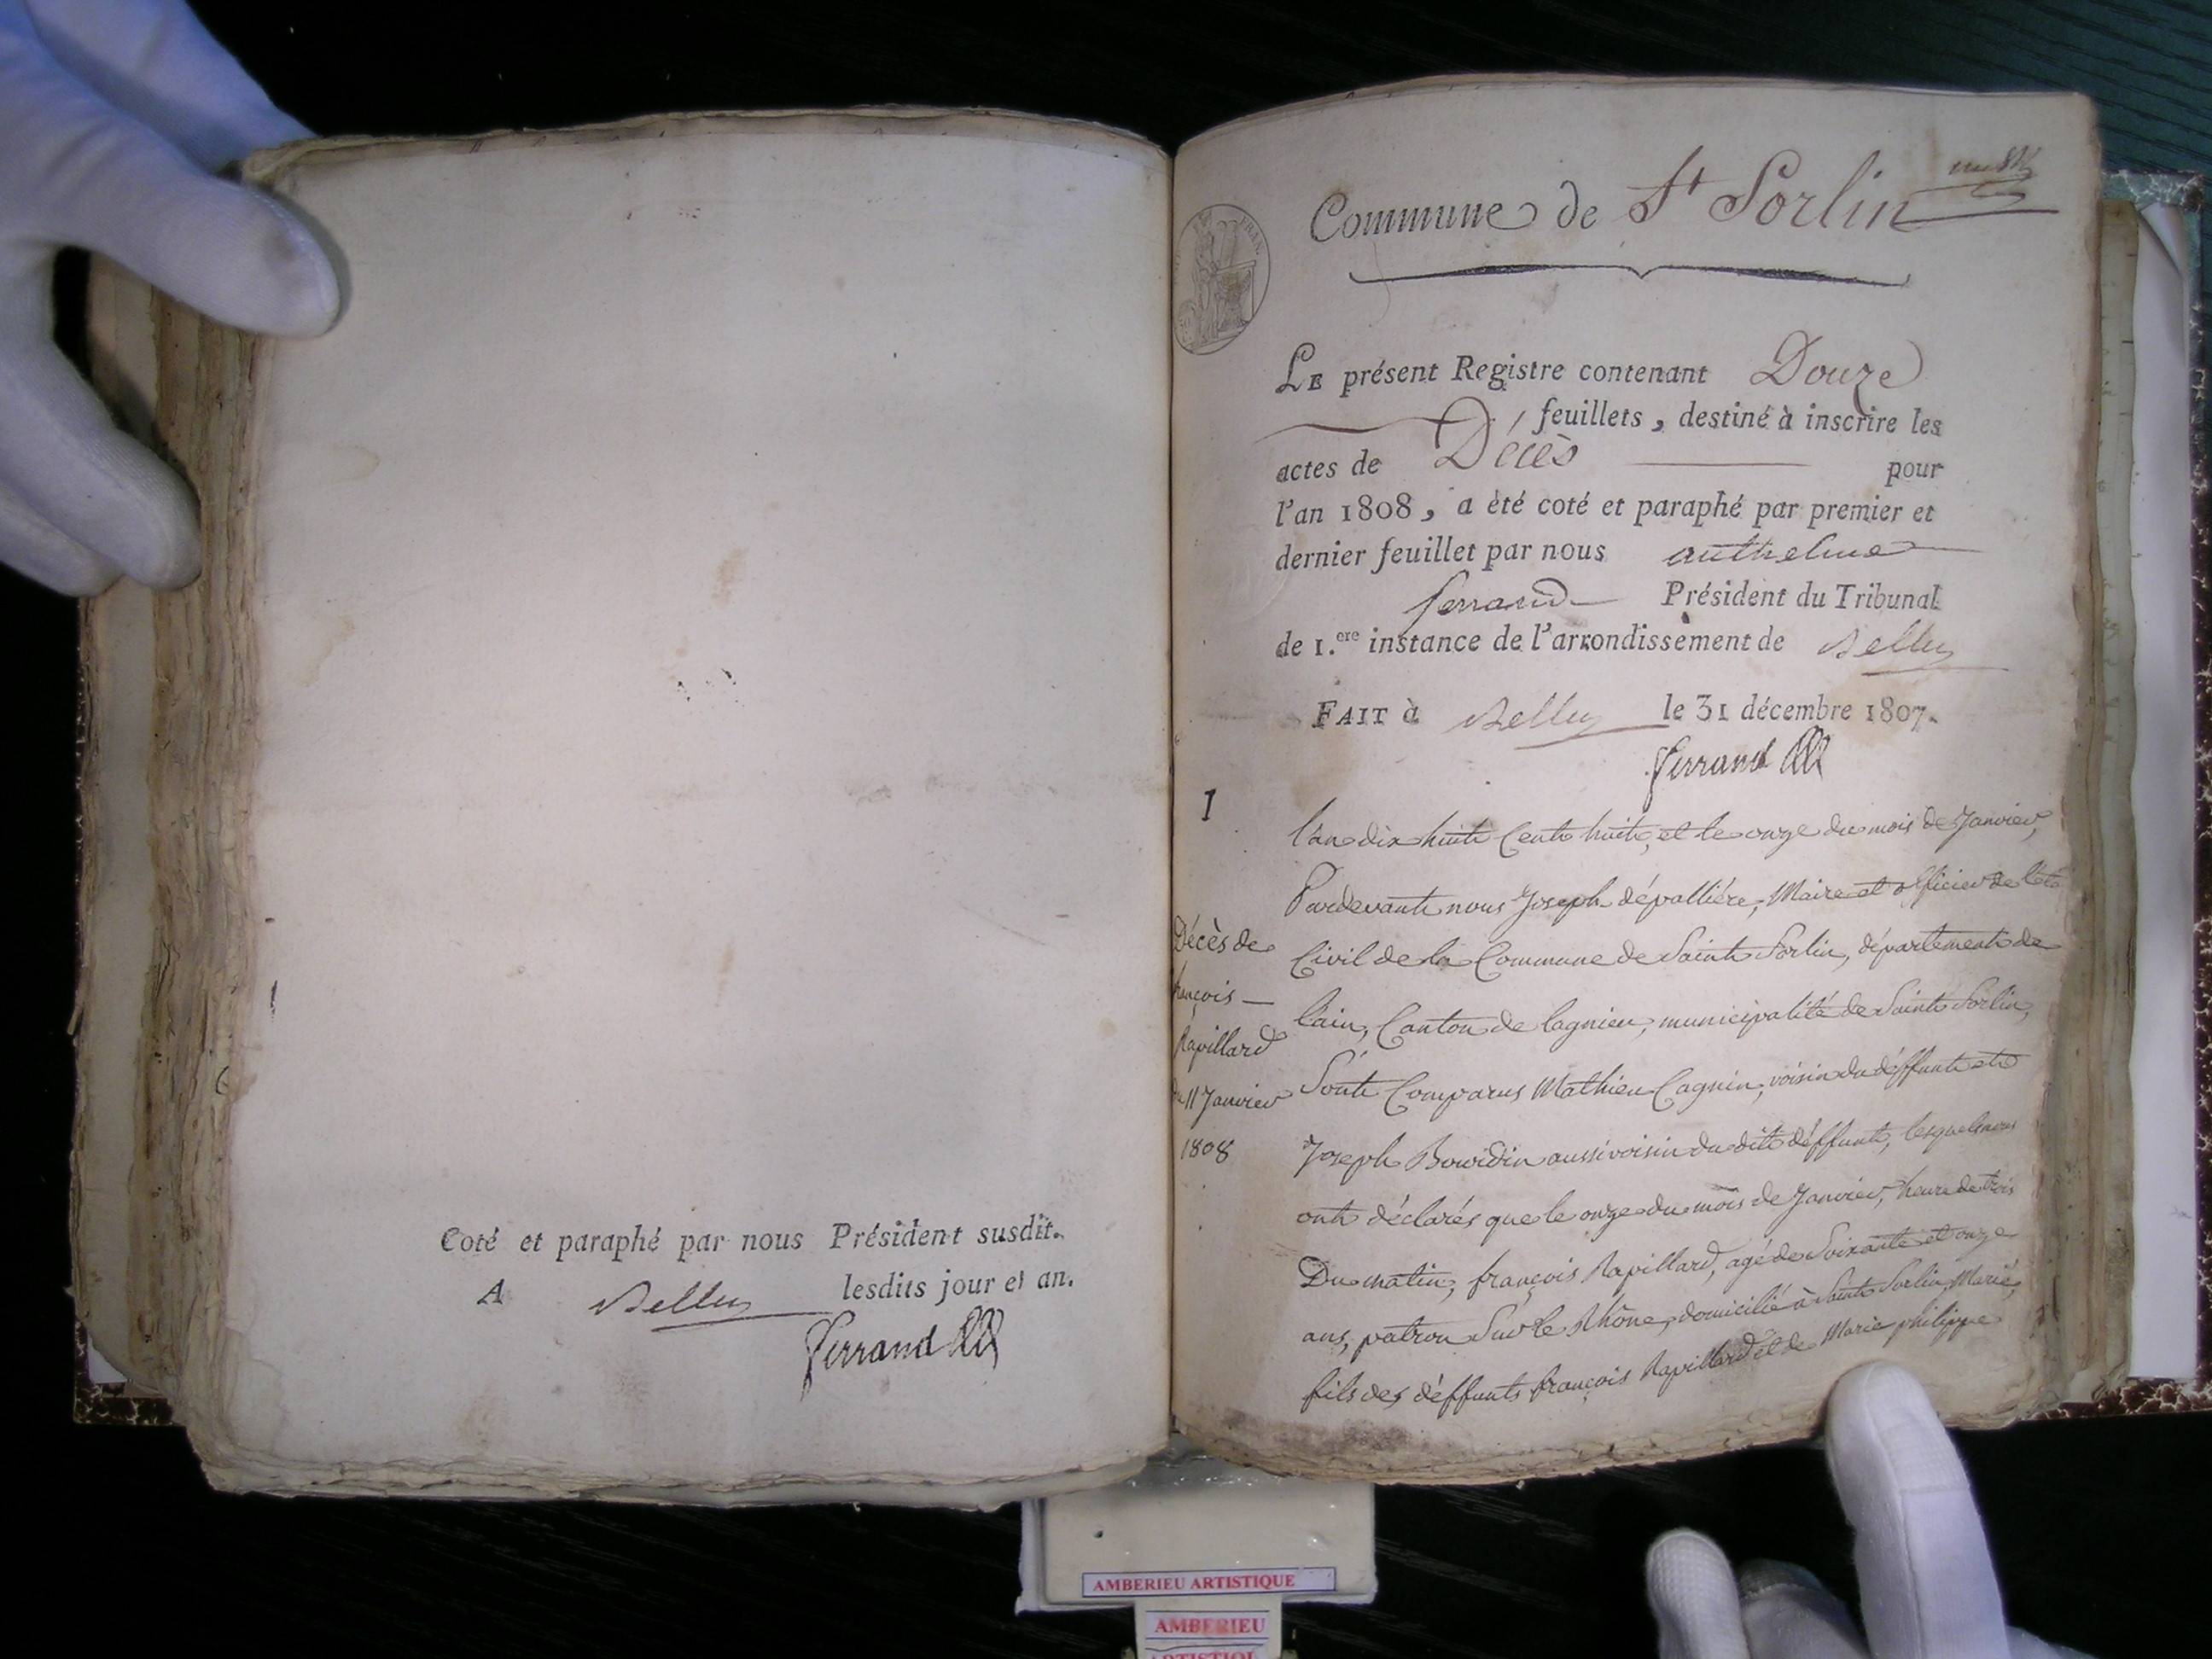 Coté et paraphé par nous Président susdit.
A Belley lesdits jour et an.
Ferrand
Commune de St Sorlin
Le présent Registre contenant Douze
feuillets, destiné à inscrire les
actes de Décès pour
l'an 1808, a èté coté et paraphé par premier et
dernier feuillet par nous anthelme
ferrand Président du Tribunal
de 1.ere instance de l'arrondissement de Belley
FAIT à Belley le 31 décembre 1807.
Ferrand
1
Décès de
françois
Rapillard
du 11 Janvier
1808
l'an dix huit Cent huit, et le onze du mois de Janvier,
Pardevant nous Joseph dépallière, Maire et officier de l'état
Civil de la Commune de Saint Sorlin, département de
l'ain, Canton de lagnieu, municipalité de Saint Sorlin,
Sont Comparus Mathieu Cagnin, voisin du déffunt et
Joseph Bourdin aussi voisin du dit déffunt, lesquels nous
ont déclarés que le onze du mois de Janvier, heure de trois
Du matin, françois Rapillard, agé de Soixante et onze
ans, patron Sur le Rhône, domicilié à Saint Sorlin, Marié,
fils des déffunts françois Rapillard et de Marie philippe
AMBERIEU ARTISTIQUE
AMBERIEU
ARTISTIQUE